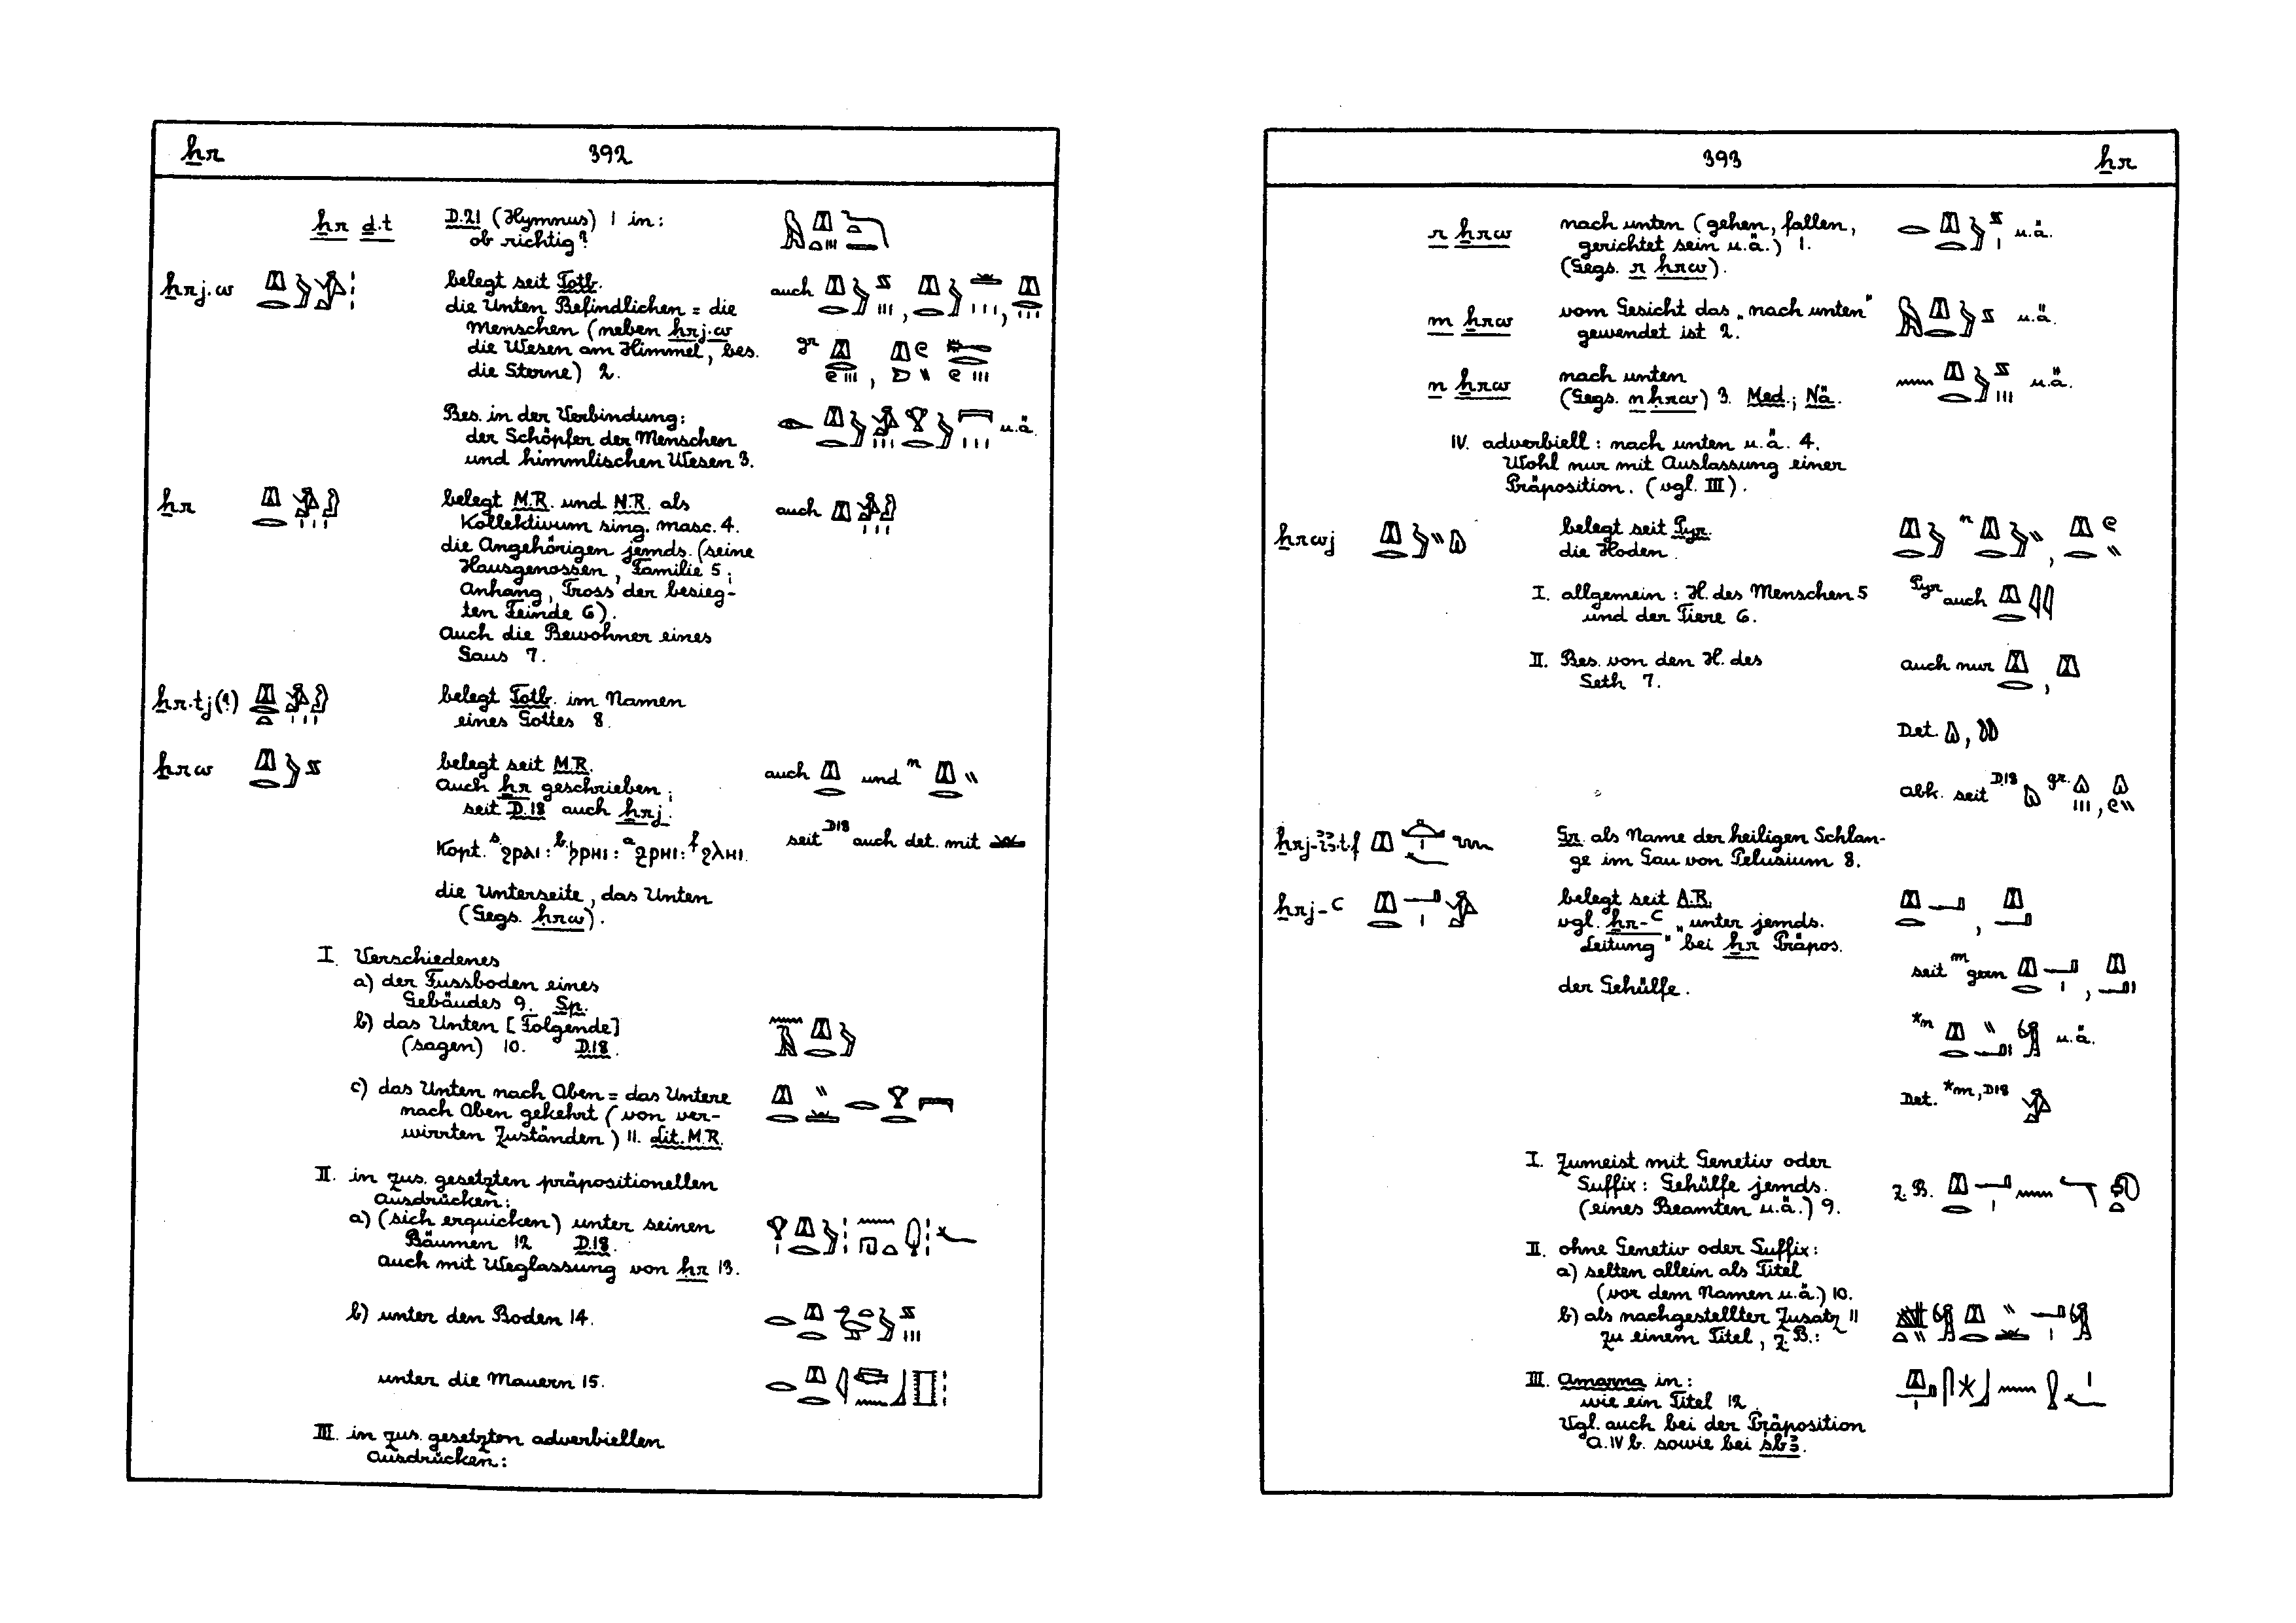 ẖr
392
ẖr ḏ.t
D.21 (Hymnus) 1 in:
ob richtig?
ẖrj.w
belegt seit Totb.
auch
die Unten Befindlichen = die
Menschen (neben ḥrj.w
die Wesen am Himmel, bes.
gr
die Sterne) 2.
Bes. in der Verbindung:
der Schöpfer der Menschen
u.ä.
und himmlischen Wesen 3.
ẖr
belegt M.R. und N.R. als
auch
Kollektivum sing. masc. 4.
die Angehörigen jemds. (seine
Hausgenossen, Familie 5;
Anhang, Tross der besieg-
ten Feinde 6).
Auch die Bewohner eines
Gaus 7.
ẖr.tj(?)
belegt Totb. im Namen
eines Gottes 8.
ẖrw
belegt seit M.R.
auch und n
Auch ẖr geschrieben;
seit D.18 auch ẖrj.
Kopt. s. ϩⲣⲁⲓ: b. ϧⲣⲏⲓ: a ϩⲣⲏⲓ: f ϩⲗⲏⲓ.
seit D18 auch det. mit
die Unterseite, das Unten
(Gegs. ḥrw).
I. Verschiedenes
a) der Fussboden eines
Gebäudes 9. Sp.
b) das Unten [Folgende]
(sagen) 10. D.18.
c) das Unten nach Oben = das Untere
nach Oben gekehrt (von ver-
wirrten Zuständen) 11. Lit. M.R.
II. in zus. gesetzten präpositionellen
Ausdrücken:
a) (sich erquicken) unter seinen
Bäumen 12 D.18.
auch mit Weglassung von ḥr 13.
b) unter den Boden 14.
unter die Mauern 15.
III. in zus. gesetzten adverbiellen
Ausdrücken:
393
ẖr
r ẖrw
nach unten (gehen, fallen,
gerichtet sein u.ä.) 1.
u.ä.
(Gegs. r ḥrw).
m ẖrw
vom Gesicht das „nach unten"
gewendet ist 2.
u.ä.
n ẖrw
nach unten
(Gegs. n ḥrw) 3. Med.; Nä.
u.ä.
IV. adverbiell: nach unten u.ä. 4.
Wohl nur mit Auslassung einer
Präposition. (vgl. III).
ẖrwj
belegt seit Pyr.
n
die Hoden.
I. allgemein: H. des Menschen 5
und der Tiere 6.
Pyr auch
II. Bes. von den H. des
Seth 7.
auch nur
Det.
Abk. seit D18 gr.
ẖrj-ꜣꜣ.t.f
Gr. als Name der heiligen Schlan-
ge im Gau von Pelusium 8.
ẖrj-ꜥ
belegt seit A.R.
vgl. ẖr-ꜥ „unter jemds.
Leitung" bei ẖr Präpos.
seit m gern
der Gehülfe.
*m u.ä.
Det. *m, D18
I. Zumeist mit Genetiv oder
Suffix: Gehülfe jemds.
(eines Beamten u.ä.) 9.
z. B.
II. ohne Genetiv oder Suffix:
a) selten allein als Titel
(vor dem Namen u.ä.) 10.
b) als nachgestellter Zusatz 11
zu einem Titel, z.B.:
III. Amarna in:
wie ein Titel 12.
Vgl. auch bei der Präposition
A. IV b. sowie bei śbꜣ.